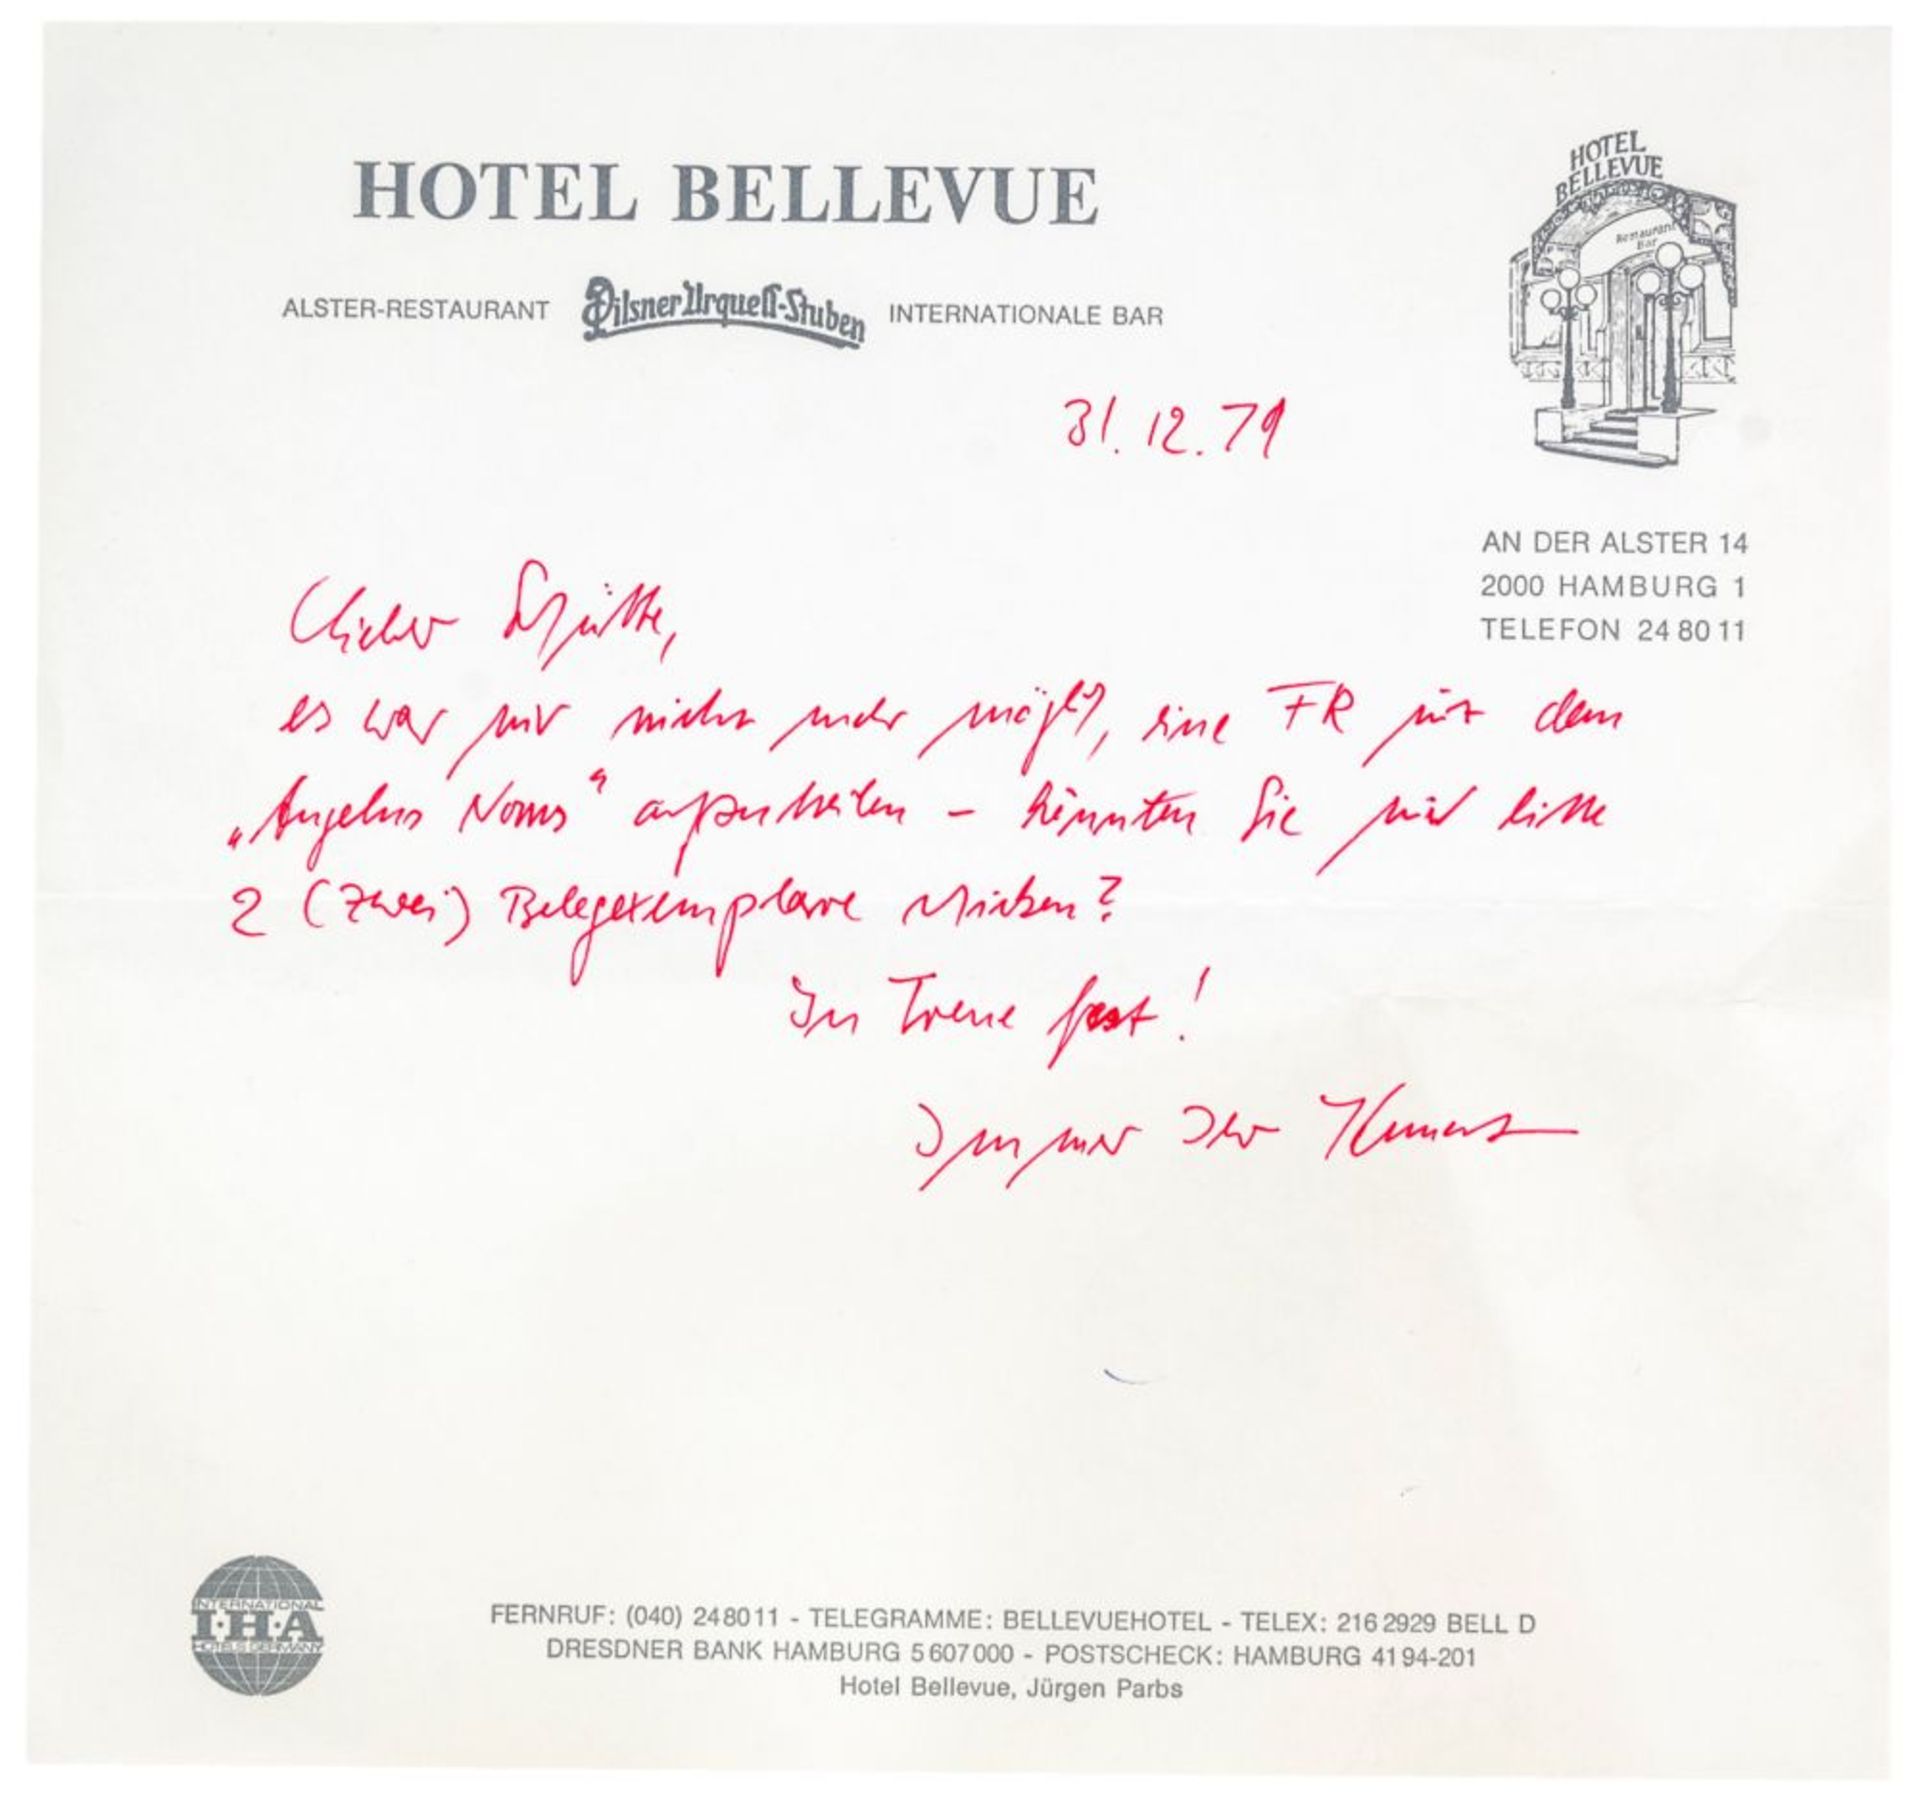 HOTEL BELLEVUE
ALSTER-RESTAURANT Pilsner Urquell-Stuben INTERNATIONALE BAR
HOTEL
BELLEVUE
Restaurant
Bar
31.12.79
AN DER ALSTER 14
2000 HAMBURG 1
TELEFON 24 80 11
Lieber Schütte,
es war mir nicht mehr möglich, eine FR mit dem
„Angelus Novus“ aufzutreiben – könnten Sie mir bitte
2 (zwei) Belegexemplare schicken?
In Treue fest!
Immer Ihr
INTERNATIONAL
I·H·A
HOTELS GERMANY
FERNRUF: (040) 248011 - TELEGRAMME: BELLEVUEHOTEL - TELEX: 216 2929 BELL D
DRESDNER BANK HAMBURG 5 607 000 - POSTSCHECK: HAMBURG 41 94-201
Hotel Bellevue, Jürgen Parbs